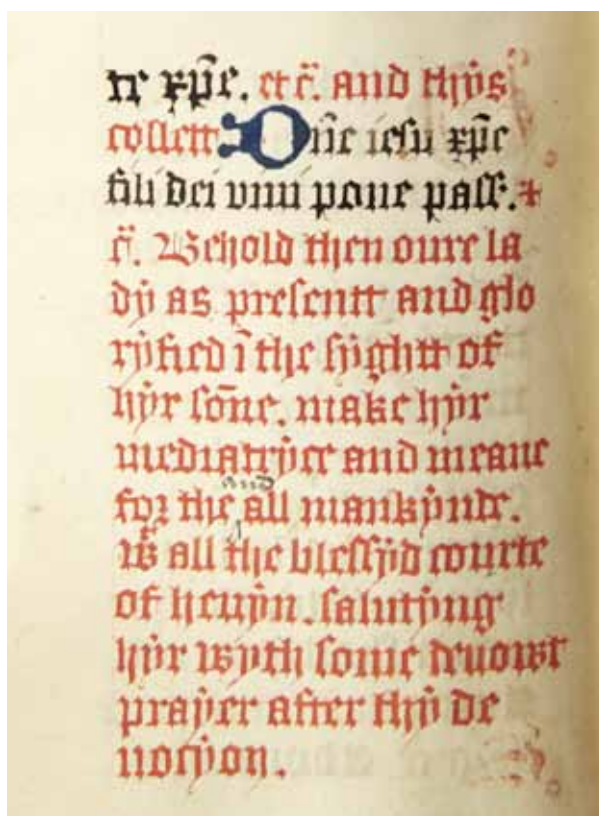 te xp̄e. et c̄. and thẏs
collett Dn̄e iesu xp̄e
fili dei viui pone pass. +
c̄. Behold then oure la
dẏ as presentt and glo
rẏfied ī the sẏghtt of
hẏr sōne. make hẏr
mediatrẏce and meane
for the and all mankẏnde.
wt all the blessẏd courte
of heuẏn. salutẏng
hẏr wẏth some deuowt
praẏer after thẏ de
nocẏon.